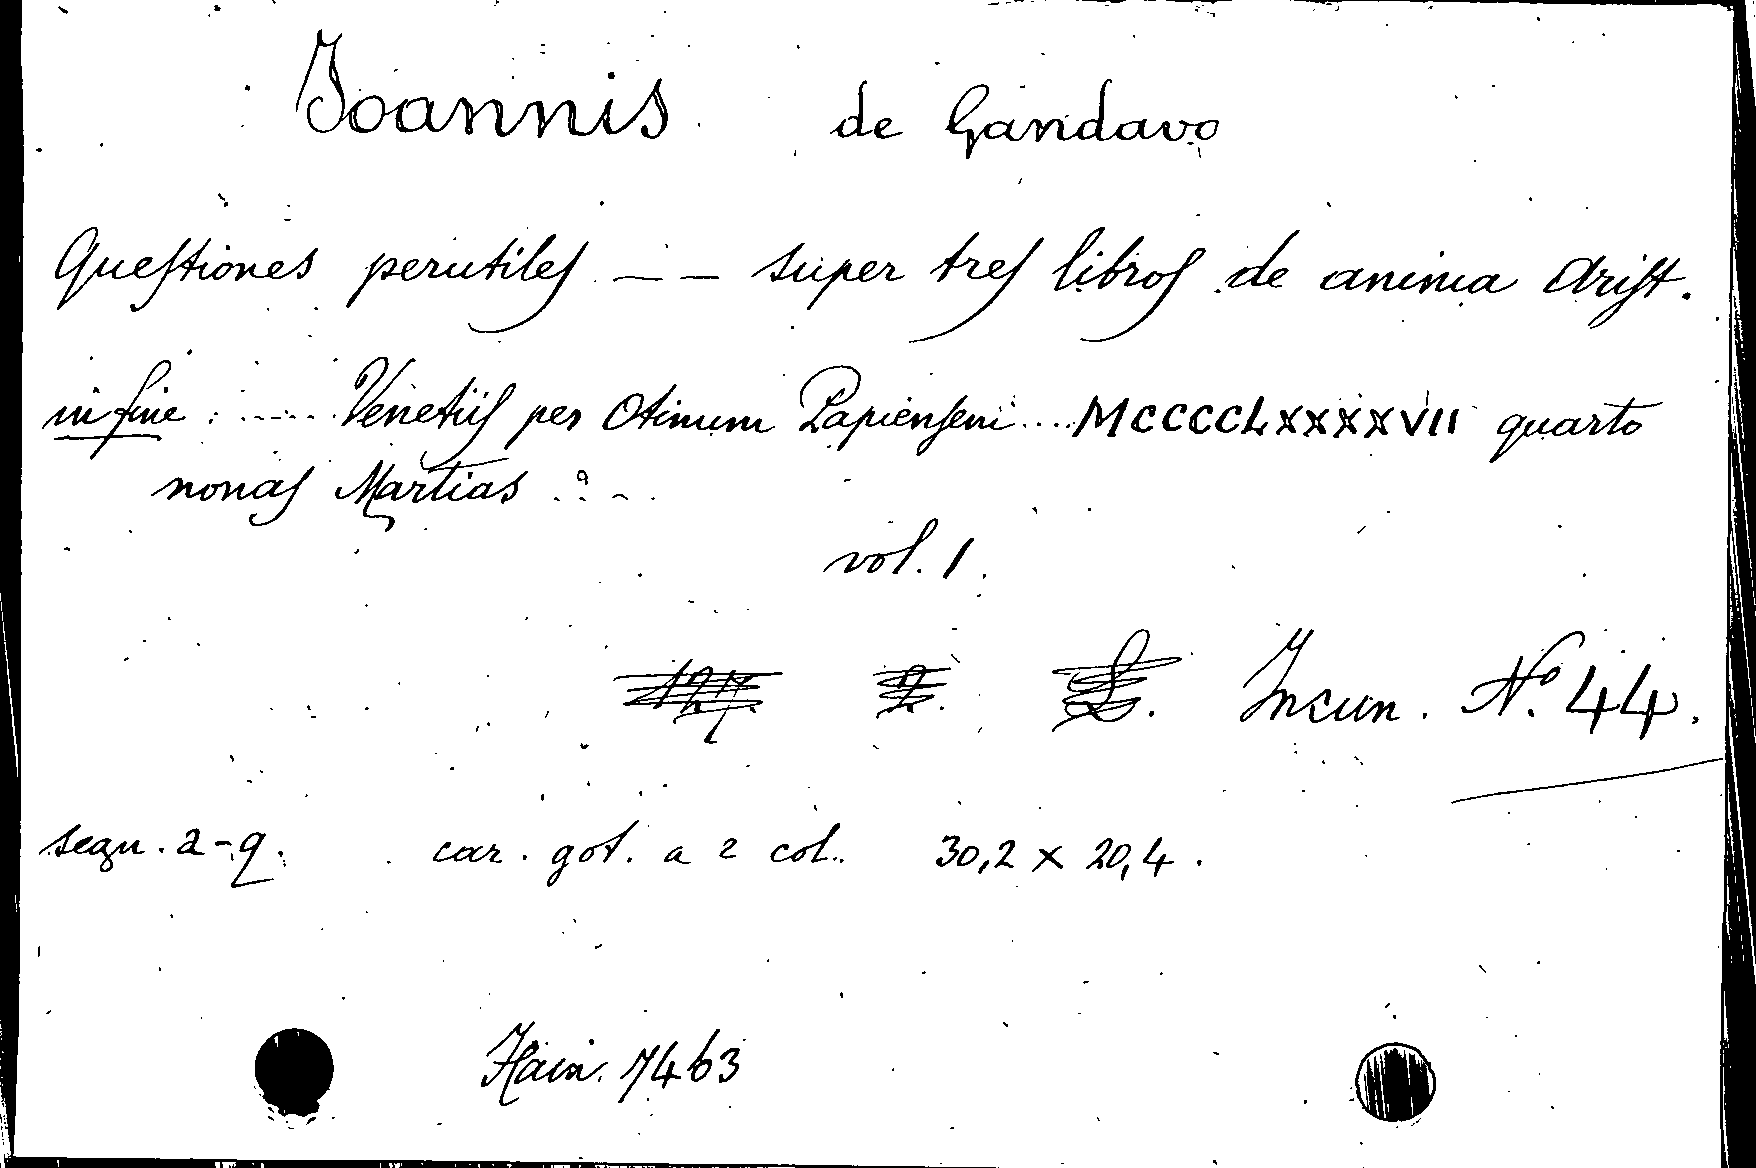 Joannis de Gandavo
Questiones perutiles -- super tres libros de anima Arist.
in fine : ..... Venetiis per Otinum Papiensem .... MCCCCLXXXXVII quarto
nonas Martias ....
vol. 1.
Incun. Nº 44.
segn. a-q. car. got. a 2 col. 30,2 x 20,4.
Hain. 7463